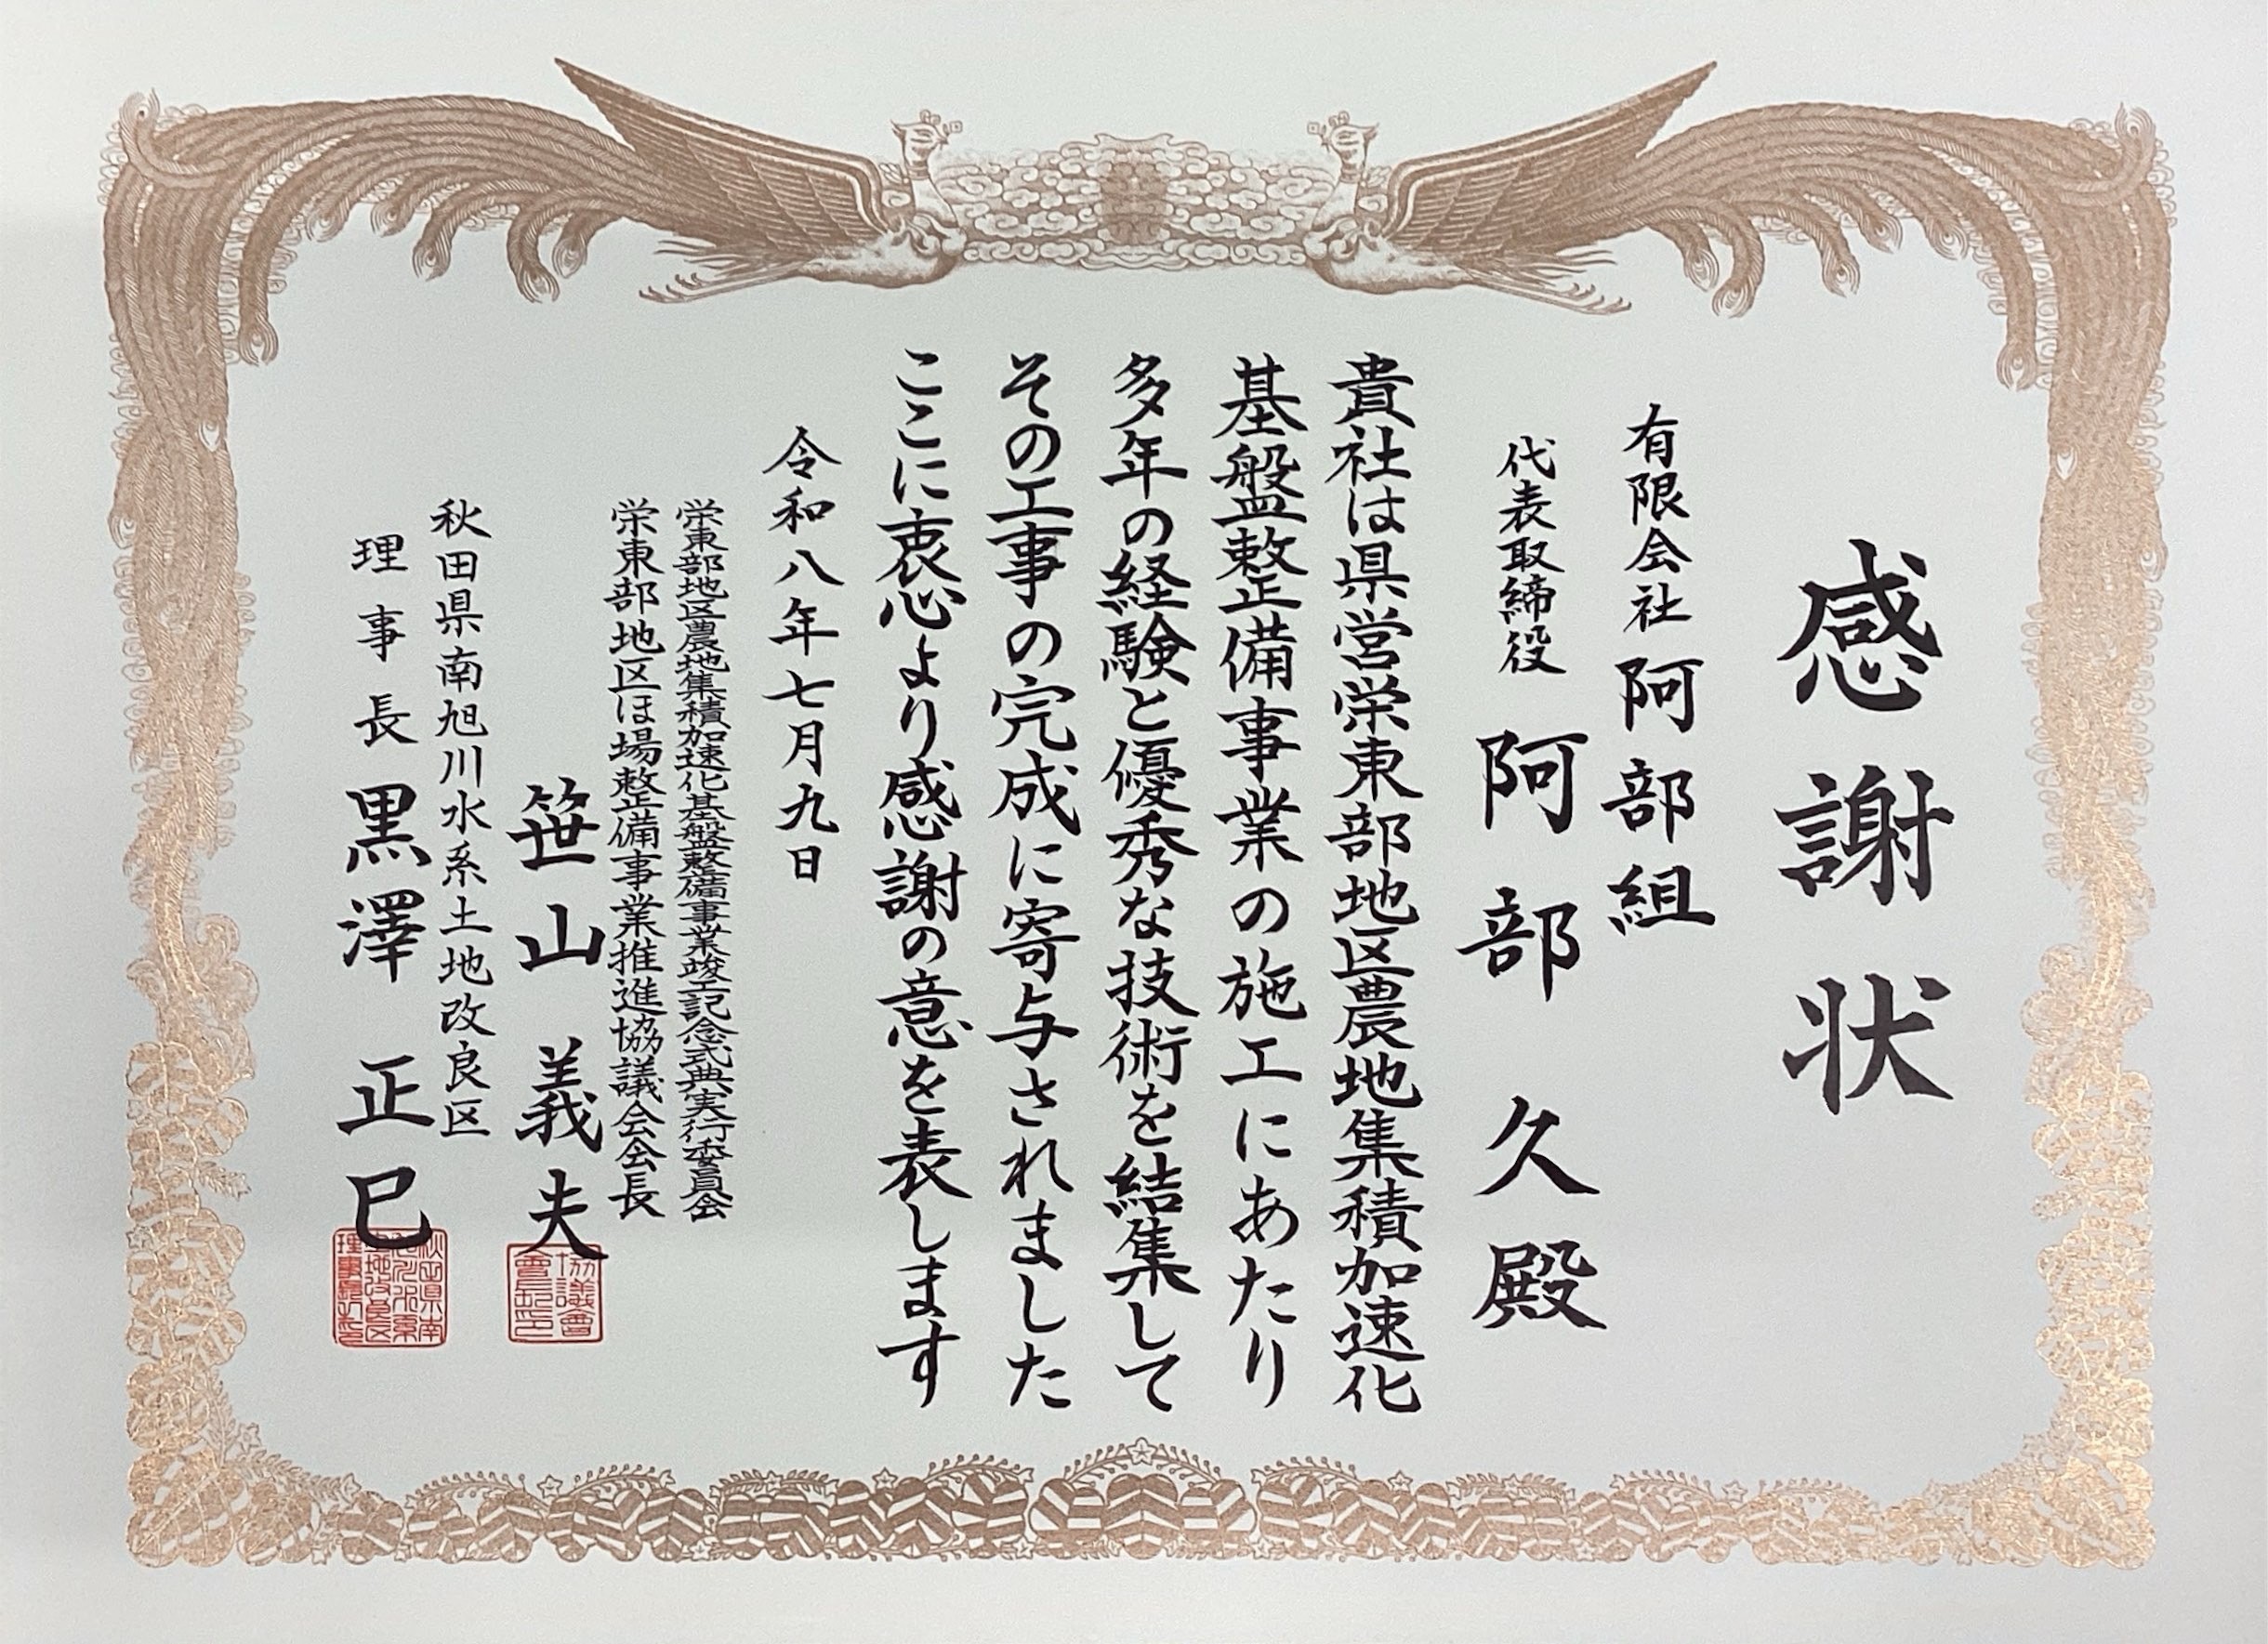 感謝状
有限会社阿部組
代表取締役 阿部久殿
貴社は県営栄東部地区農地集積加速化
基盤整備事業の施工にあたり
多年の経験と優秀な技術を結集して
その工事の完成に寄与されました
ここに衷心より感謝の意を表します
令和八年七月九日
栄東部地区農地集積加速化基盤整備事業竣工記念式典実行委員会
栄東部地区ほ場整備事業推進協議会会長
笹山義夫
協議會
會長印
秋田県南旭川水系土地改良区
理事長 黒澤正巳
秋田県南
旭川水系
土地改良区
理事長之印